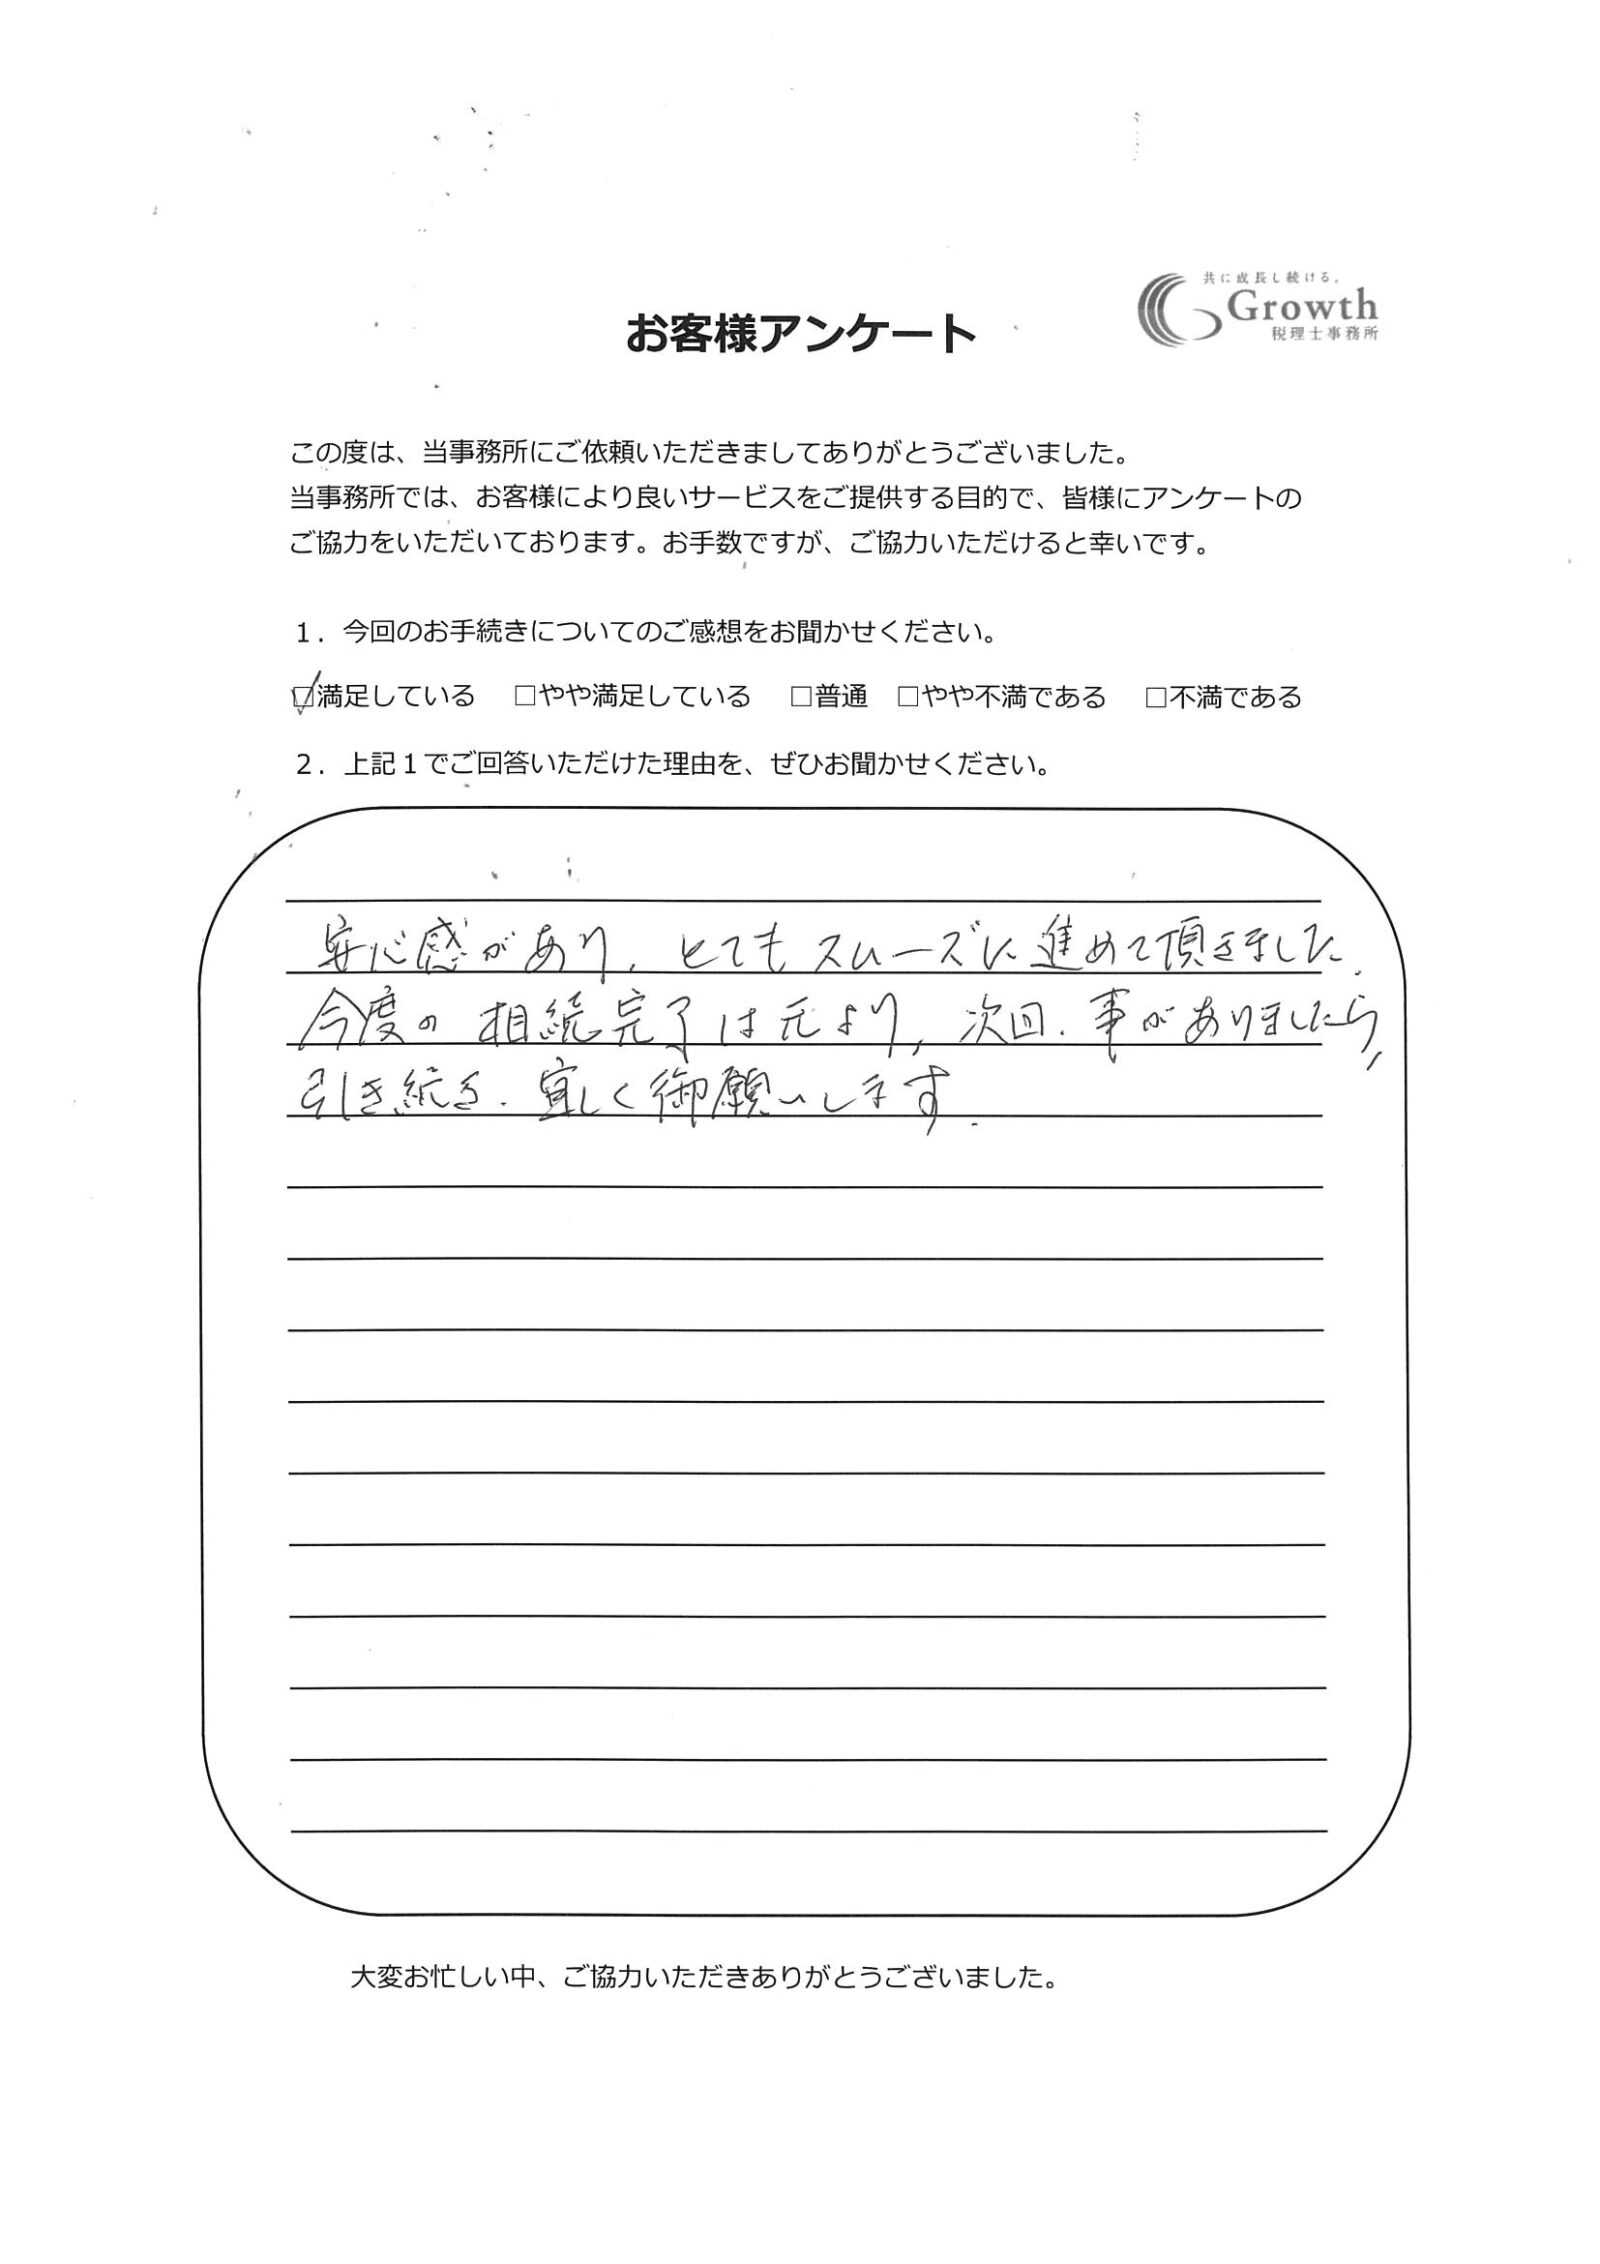 共に成長し続ける。
Growth
税理士事務所
お客様アンケート
この度は、当事務所にご依頼いただきましてありがとうございました。
当事務所では、お客様により良いサービスをご提供する目的で、皆様にアンケートの
ご協力をいただいております。お手数ですが、ご協力いただけると幸いです。
１．今回のお手続きについてのご感想をお聞かせください。
☑満足している　□やや満足している　□普通　□やや不満である　□不満である
２．上記１でご回答いただけた理由を、ぜひお聞かせください。
安心感があり、とてもスムーズに進めて頂きました.
今度の相続完了は元より、次回.事がありましたら、
引き続き.宜しく御願いします.
大変お忙しい中、ご協力いただきありがとうございました。